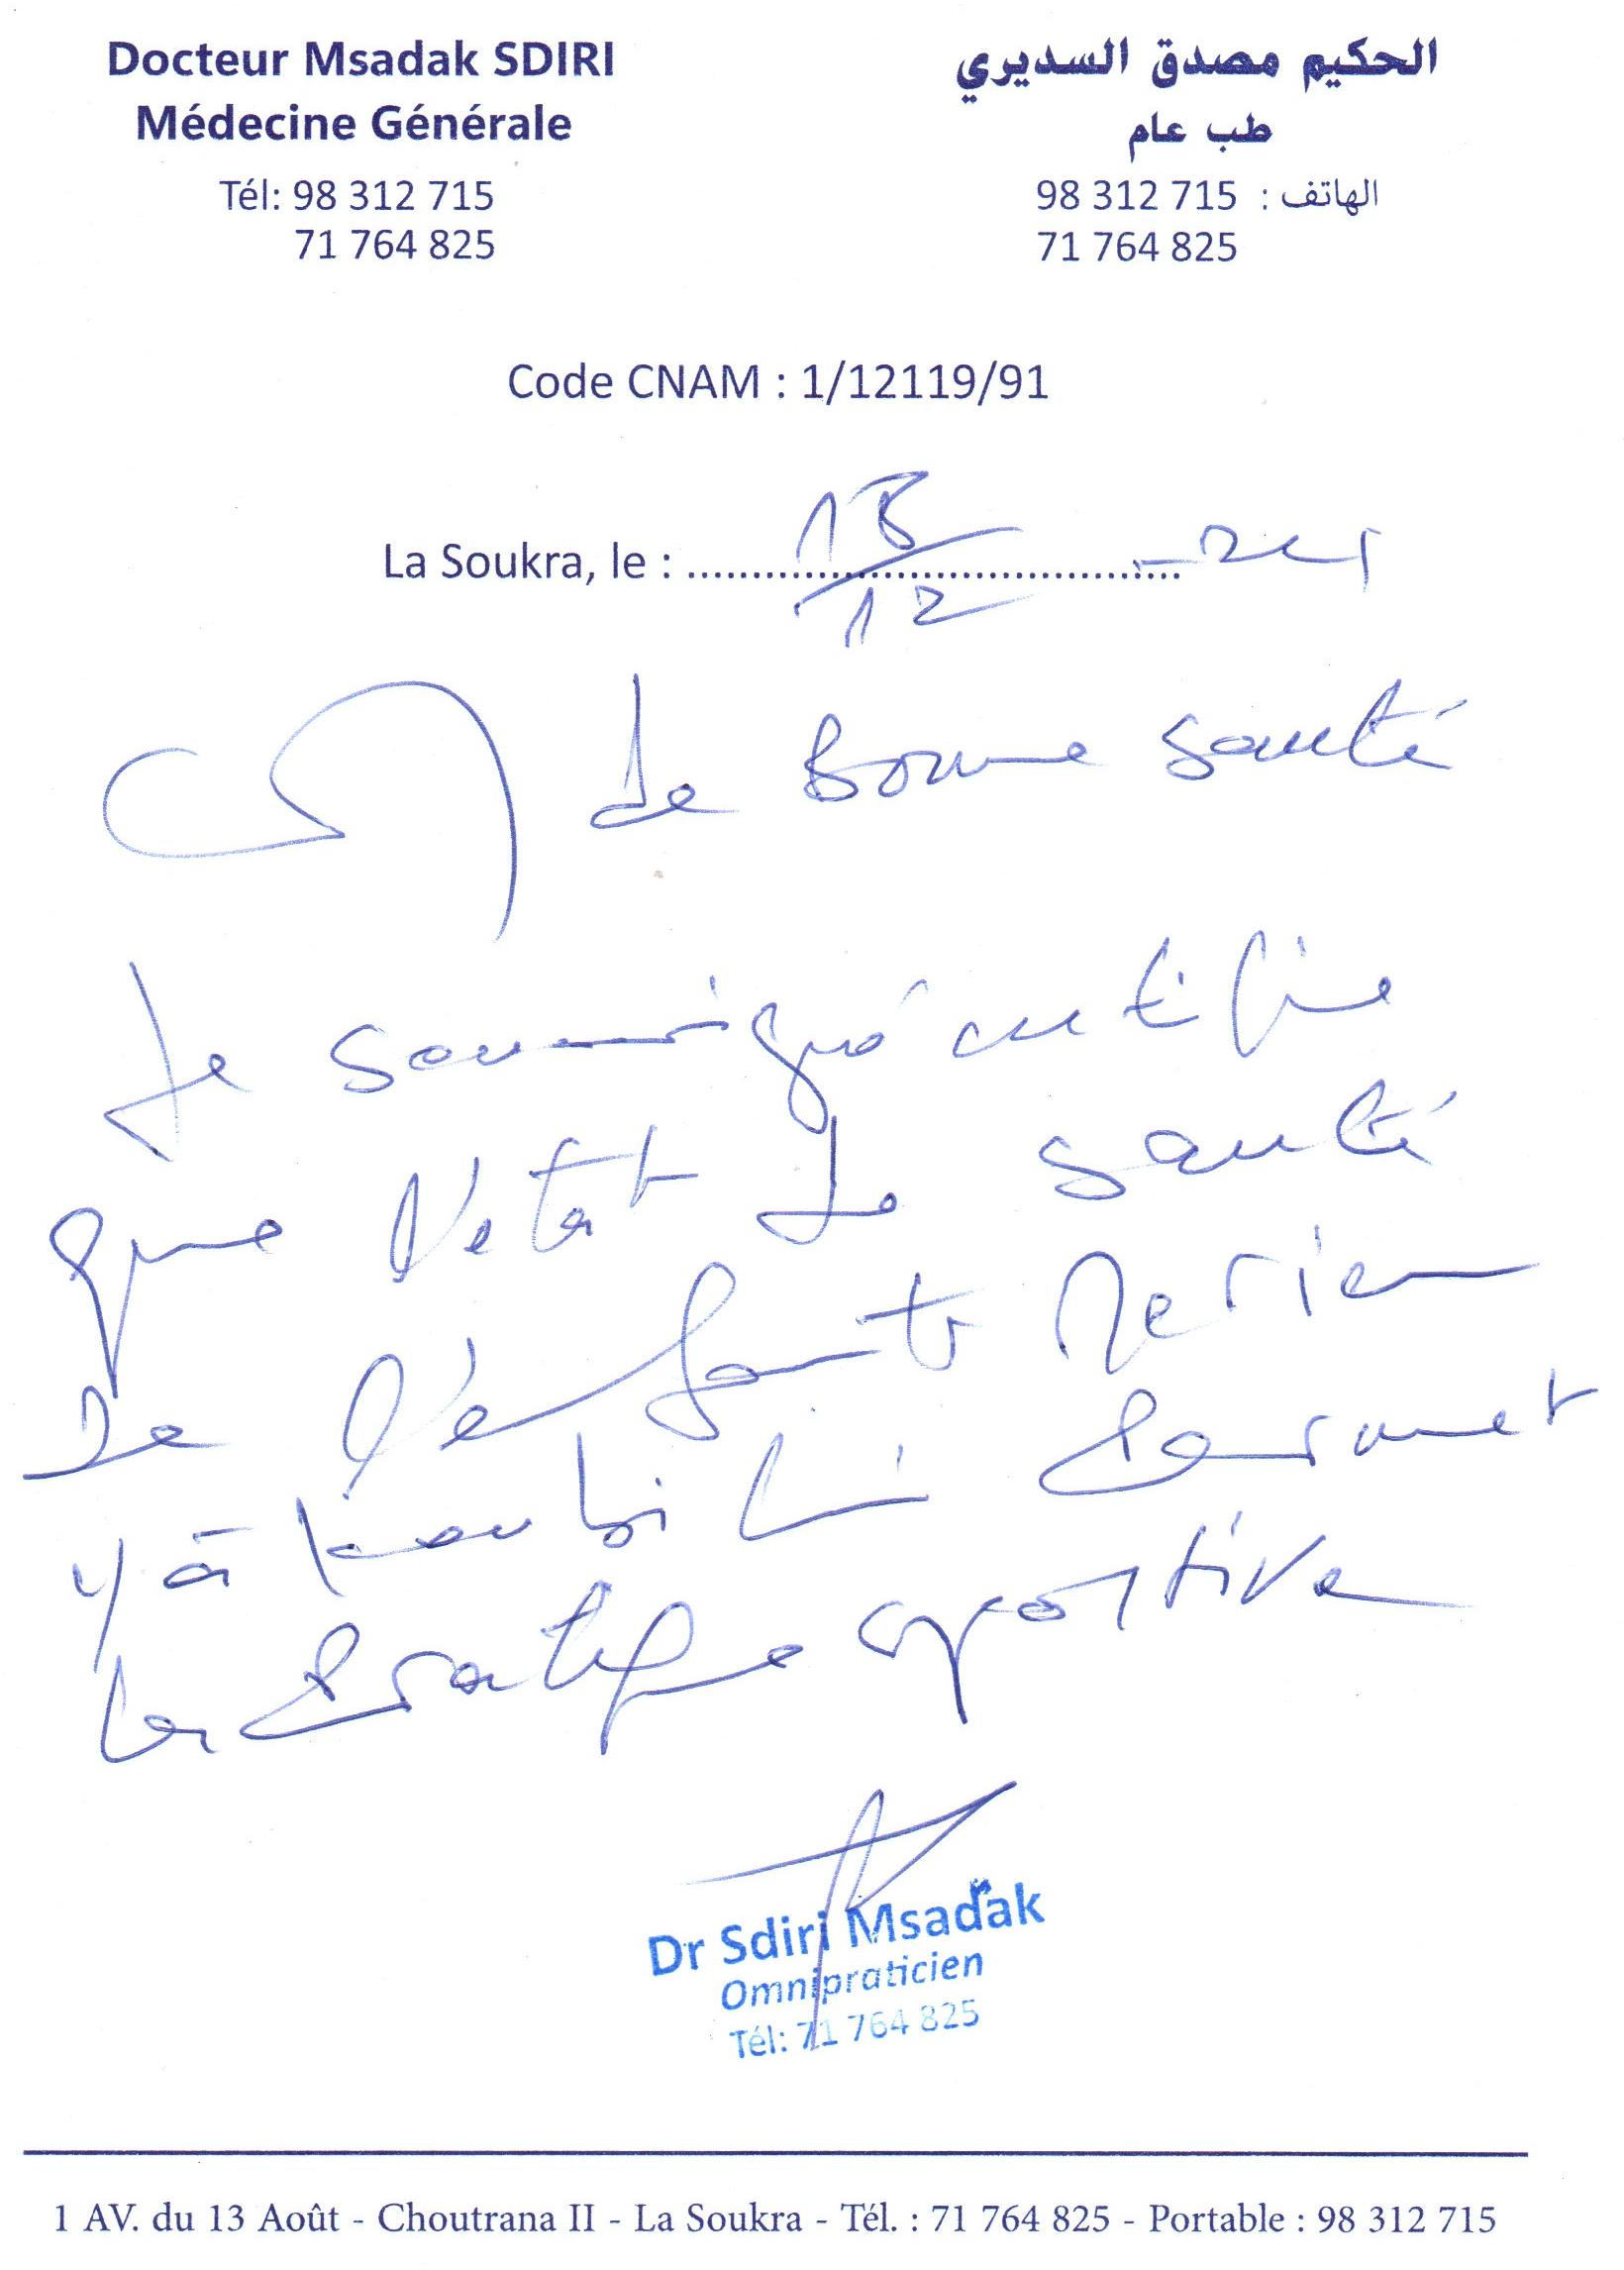 Docteur Msadak SDIRI
Médecine Générale
Tél: 98 312 715
71 764 825
الحكيم مصدق السديري
طب عام
الهاتف : 98 312 715
71 764 825
Code CNAM : 1/12119/91
La Soukra, le : 12
de bonne santé
Je soussigné certifie
que l'etat de santé
de l'enfant
lui permet
la pratique sportive
Dr Sdiri Msadak
Omnipraticien
Tél: 71 764 825
1 AV. du 13 Août - Choutrana II - La Soukra - Tél. : 71 764 825 - Portable : 98 312 715